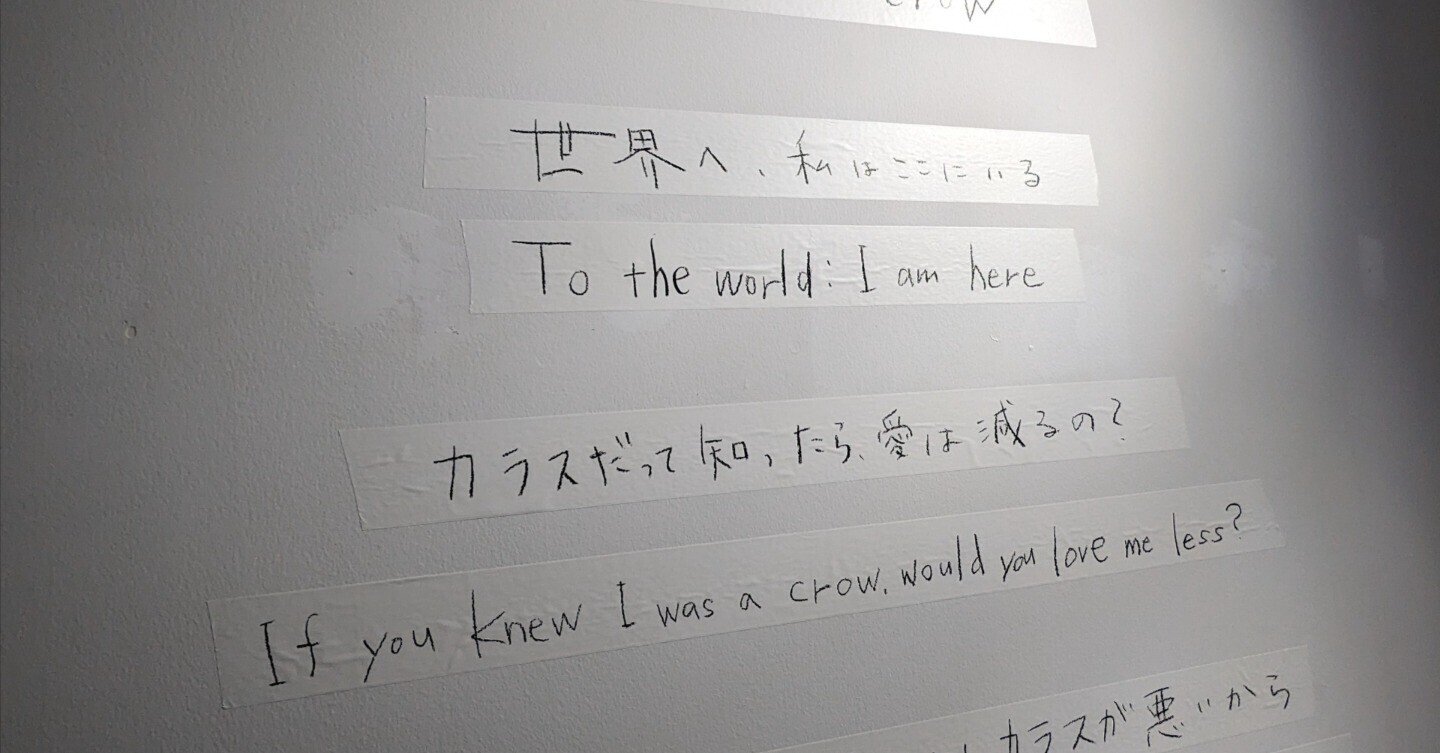 crow
世界へ、私はここにいる
To the world: I am here
カラスだって知ったら、愛は減るの?
If you knew I was a crow, would you love me less?
カラスが悪いから